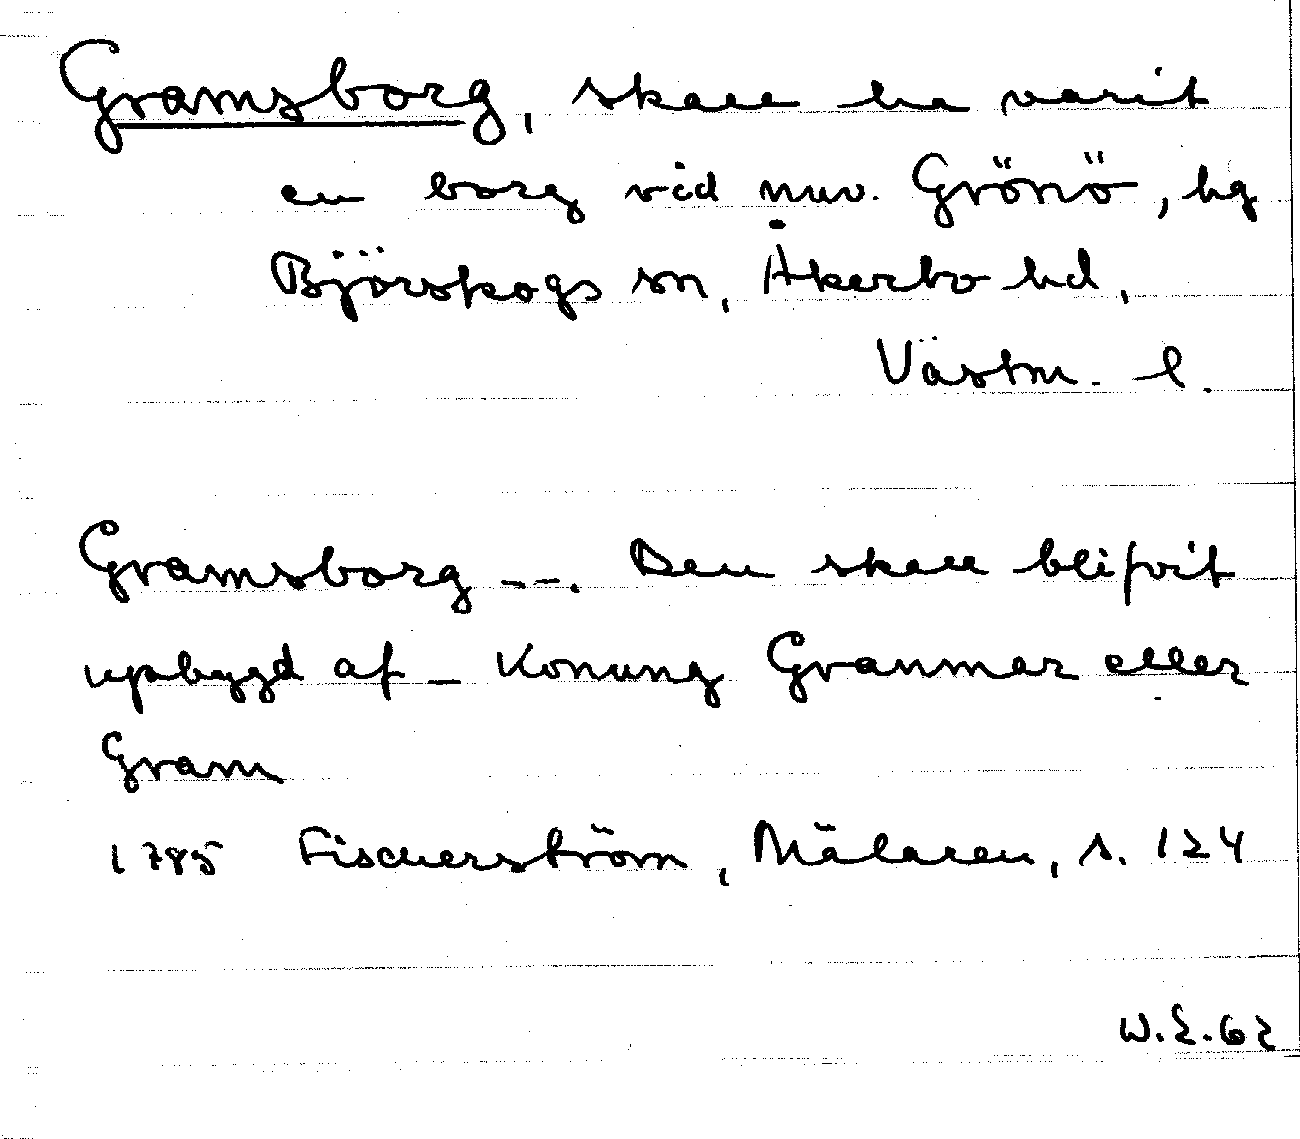 Gramsborg, skall ha varit
en borg vid nuv. Grönö, hg
Björskogs sn, Åkerbo hd,
Västm. l.
Gramsborg --. Den skall blifvit
upbygd af _ Konung Granmar eller
Gram
1785 Fischerström, Mälaren, s. 124
W.E.62